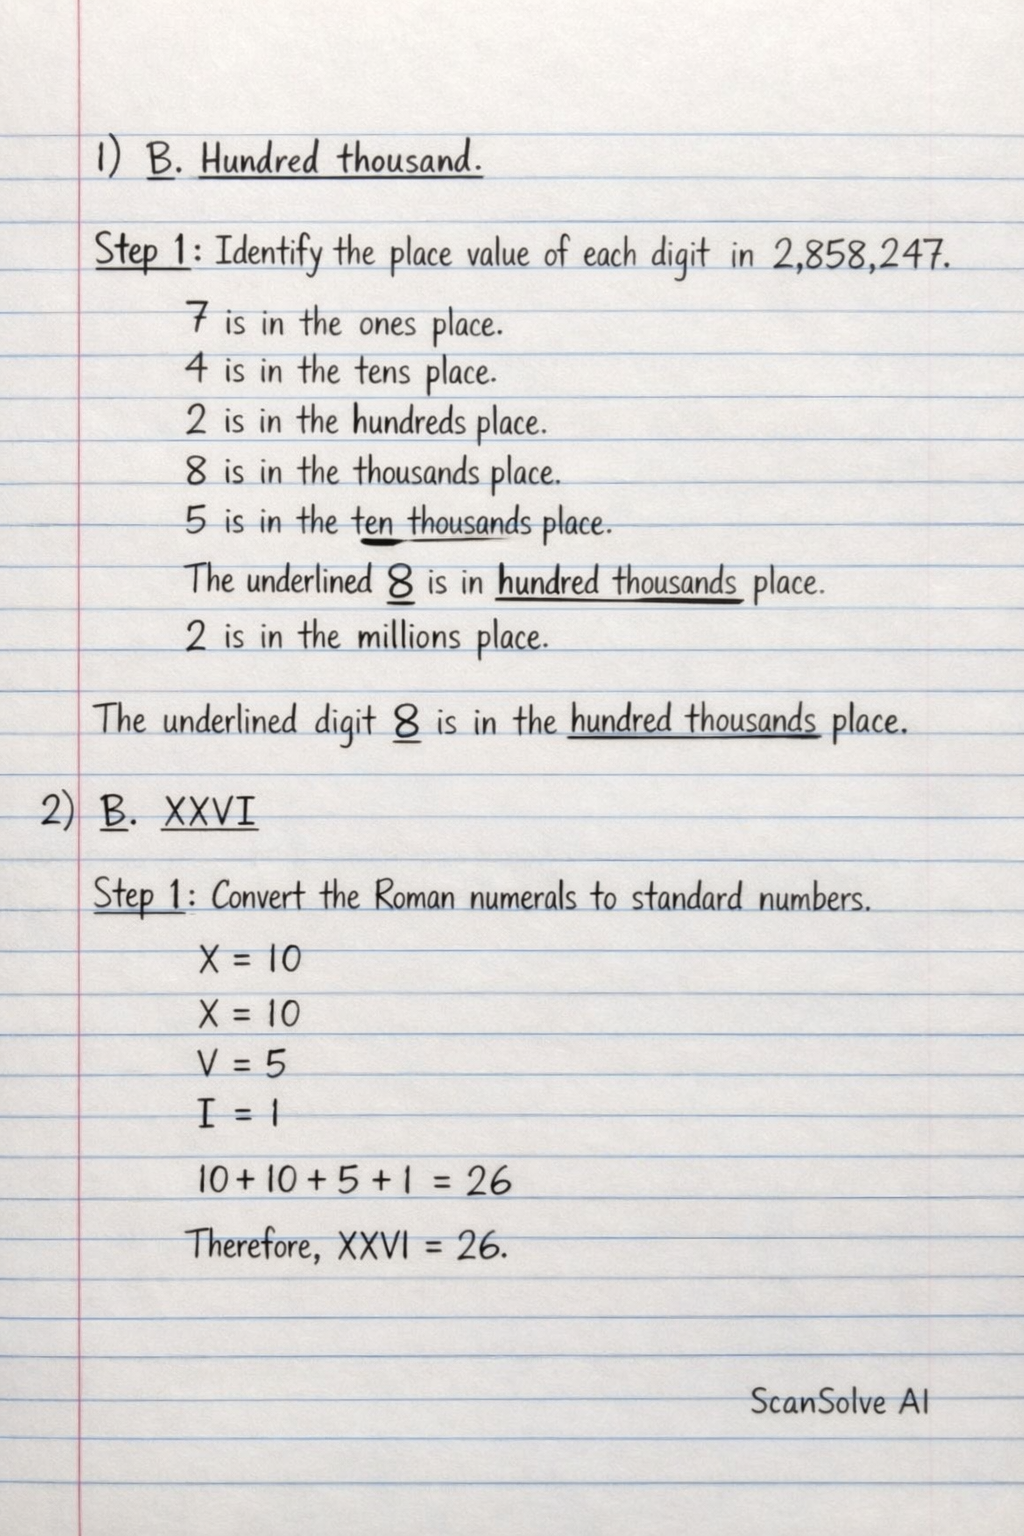 1) B. Hundred thousand.
Step 1: Identify the place value of each digit in 2,858,247.
7 is in the ones place.
4 is in the tens place.
2 is in the hundreds place.
8 is in the thousands place.
5 is in the ten thousands place.
The underlined 8 is in hundred thousands place.
2 is in the millions place.
The underlined digit 8 is in the hundred thousands place.
2) B. XXVI
Step 1: Convert the Roman numerals to standard numbers.
X = 10
X = 10
V = 5
I = 1
10 + 10 + 5 + 1 = 26
Therefore, XXVI = 26.
ScanSolve AI